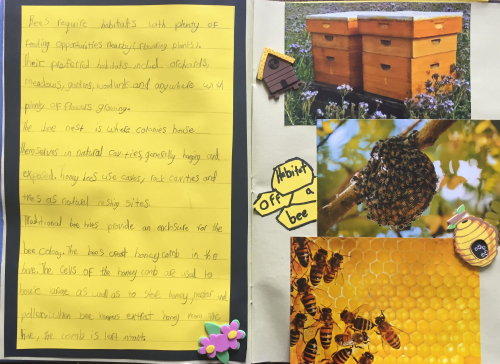 Bees require habitats with plenty of
feeding opportunities nearby (flowering plants).
Their preferred habitats includ orchards,
meadows, gardens, woodlands and anywhere with
plenty of flowers growing.
The bee nest is where colonies house
themselves in natural cavities, generally hanging and
exposed. honey bees use caves, rock cavities and
trees as natural nesting sites
Traditional bee hives provide an enclosure for the
bee colony. The bees creat honey comb in the
hive. The cells of the honey comb are used to
house larvae as well as to store honey, nectar and
pollen. when bee keepers extract honey from the
hive, the comb is left intact.
Habitat
Off a
bee